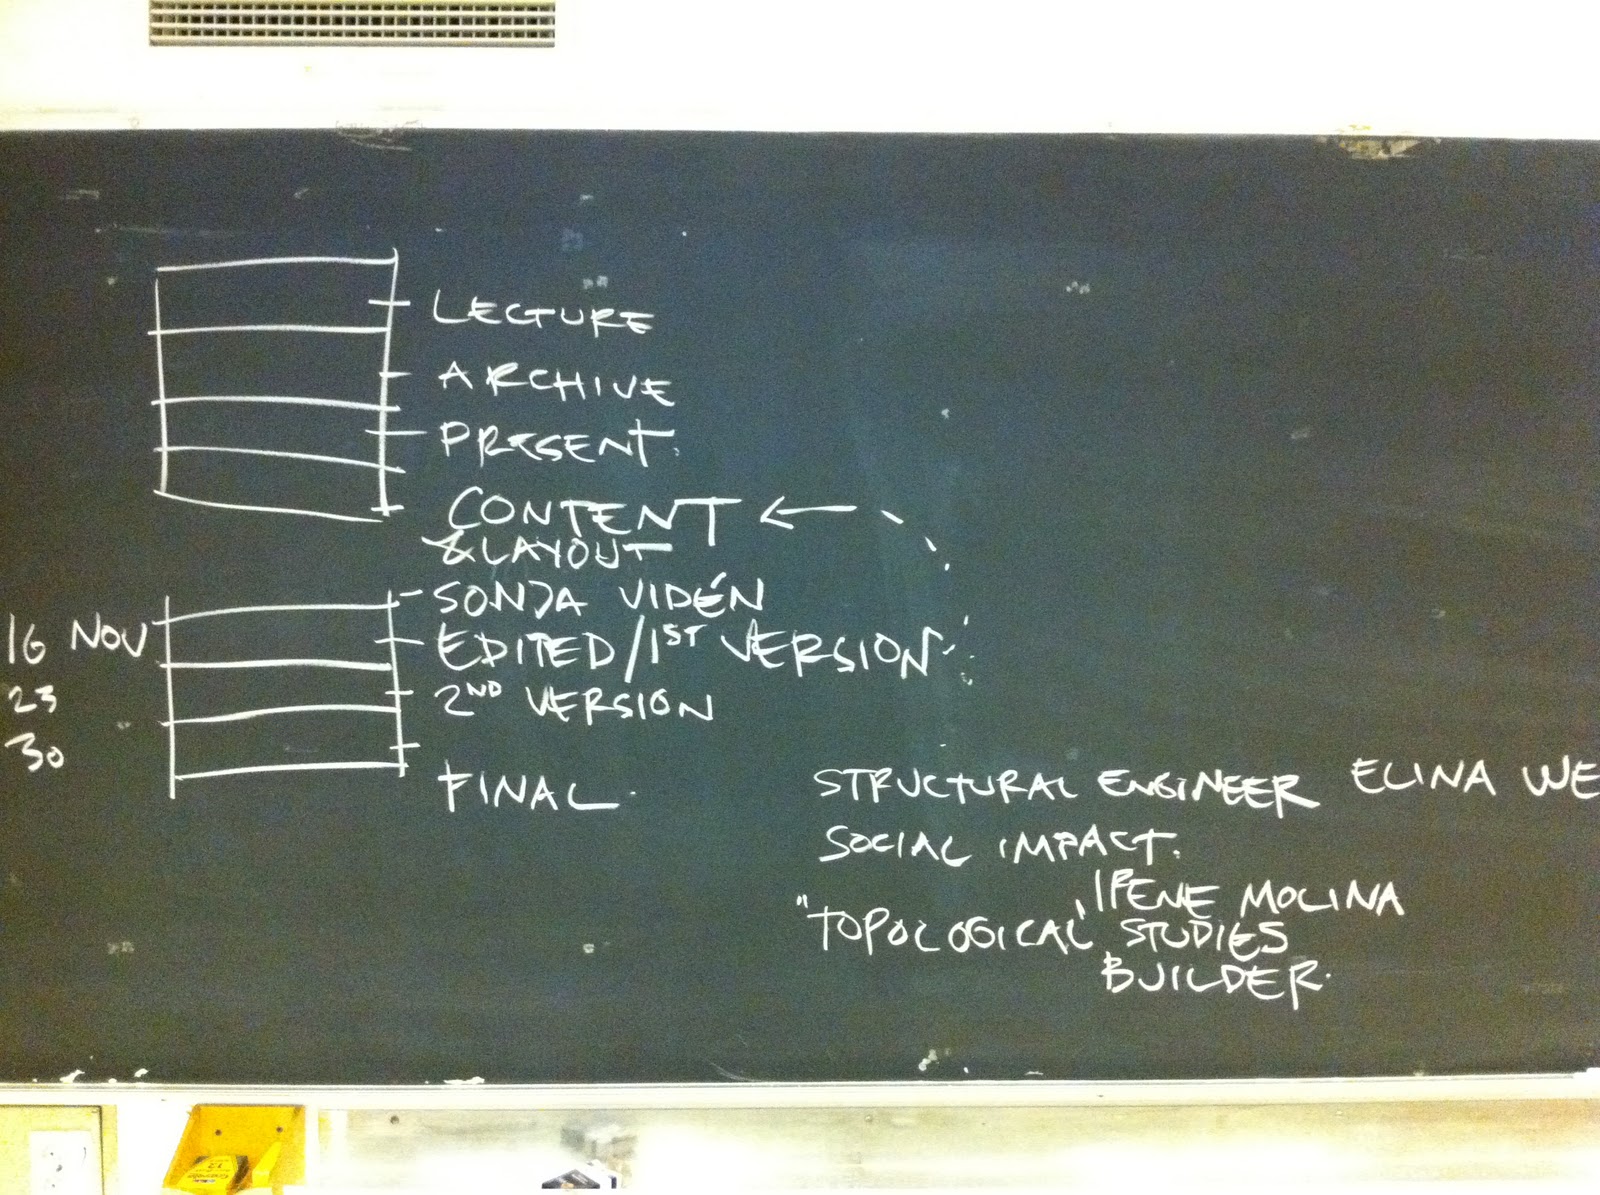 LECTURE
ARCHIVE
PRESENT.
CONTENT
& LAYOUT
SONJA VIDÉN
16 NOV EDITED/1ST VERSION
23 2ND VERSION
30 FINAL.
STRUCTURAL ENGINEER ELINA WE
SOCIAL IMPACT.
IRENE MOLINA
"TOPOLOGICAL" STUDIES
BUILDER.